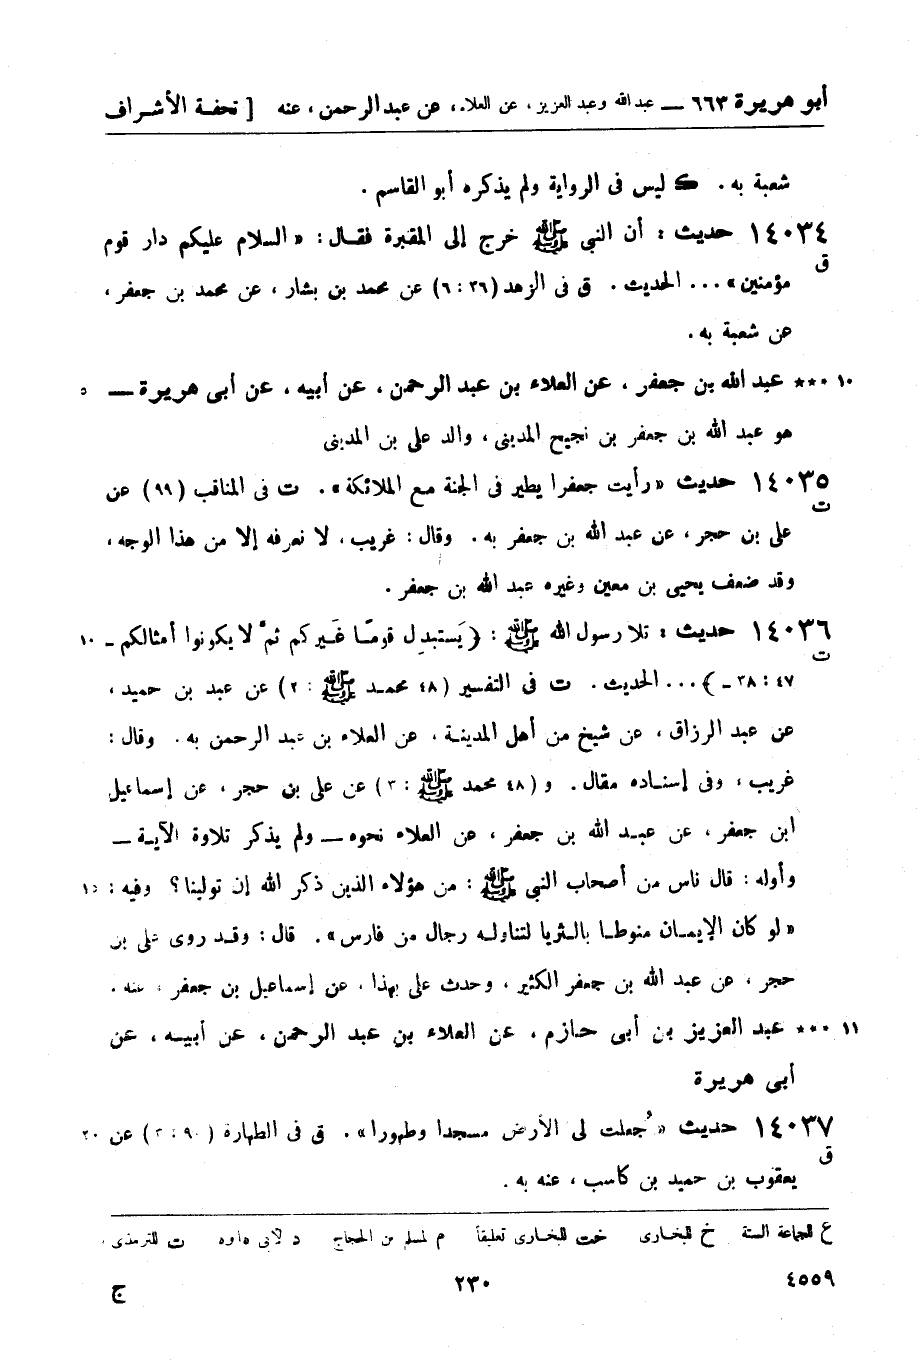 أبو هريرة ٦٦٣ ــ عبدالله وعبد العزيز، عن العلاء، عن عبد الرحمن، عنه [ تحفة الأشراف
شعبة به. ك ليس فى الرواية ولم يذكره أبو القاسم.
١٤٠٣٤ حديث: أن النبي ﷺ خرج إلى المقبرة فقال: «السلام عليكم دار قوم
ق
مؤمنين»... الحديث. ق فى الزهد (٣٦: ٦) عن محمد بن بشار، عن محمد بن جعفر،
عن شعبة به.
١٠ *** عبد الله بن جعفر، عن العلاء بن عبد الرحمن، عن أبيه، عن أبى هريرة ــ ٥
هو عبد الله بن جعفر بن نجيح المدينى، والد على بن المدينى
١٤٠٣٥ حديث «رأيت جعفرا يطير فى الجنة مع الملائكة». ت فى المناقب (٩٩) عن
ت
على بن حجر، عن عبد الله بن جعفر به. وقال: غريب، لا نعرفه إلا من هذا الوجه،
وقد ضعف يحيى بن معين وغيره عبد الله بن جعفر.
١٤٠٣٦ حديث: تلا رسول الله ﷺ: {يَستبدِل قومًا غَيركم ثمّ لا يكونوا أمثالكم ــ ١٠
ت
٤٧: ٣٨ ــ}... الحديث. ت فى التفسير (٤٨ محمد ﷺ: ٢) عن عبد بن حميد،
عن عبد الرزاق، عن شيخ من أهل المدينة، عن العلاء بن عبد الرحمن به. وقال:
غريب، وفى إسناده مقال. و (٤٨ محمد ﷺ: ٣) عن على بن حجر، عن إسماعيل
ابن جعفر، عن عبد الله بن جعفر، عن العلاء نحوه ــ ولم يذكر تلاوة الآية ــ
وأوله: قال ناس من أصحاب النبي ﷺ: من هؤلاء الذين ذكر الله إن تولينا؟ وفيه: ١٥
«لو كان الإيمان منوطا بالثريا لتناوله رجال من فارس». قال: وقد روى على بن
حجر، عن عبد الله بن جعفر الكثير، وحدث على بهذا، عن إسماعيل بن جعفر، عنه.
١١ *** عبد العزيز بن أبى حازم، عن العلاء بن عبد الرحمن، عن أبيه، عن
أبى هريرة
١٤٠٣٧ حديث «جُعلت لى الأرض مسجدا وطهورا». ق فى الطهارة (٩٠: ٢) عن ٢٠
ق
يعقوب بن حميد بن كاسب، عنه به.
ع للجماعة الستة خ للبخارى خت للبخارى تعليقاً م لمسلم بن الحجاج د لأبى داود ت للترمذى
٤٥٥٩ ٢٣٠ ج